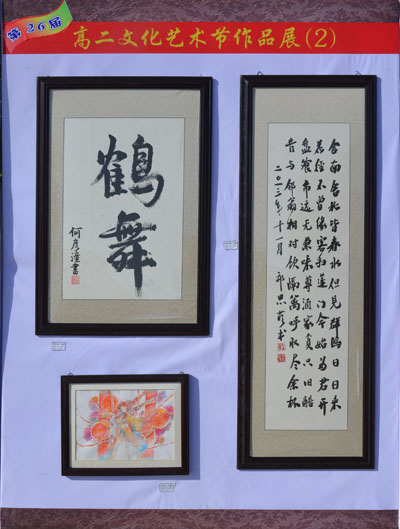 第26届
高二文化艺术节作品展(2)
鹤舞
舍南舍北皆春水但见群鸥日日来
花径不曾缘客扫蓬门今始为君开
盘飧市远无兼味尊酒家贫只旧醅
肯与邻翁相对饮隔篱呼取尽余杯
二〇一三年十一月